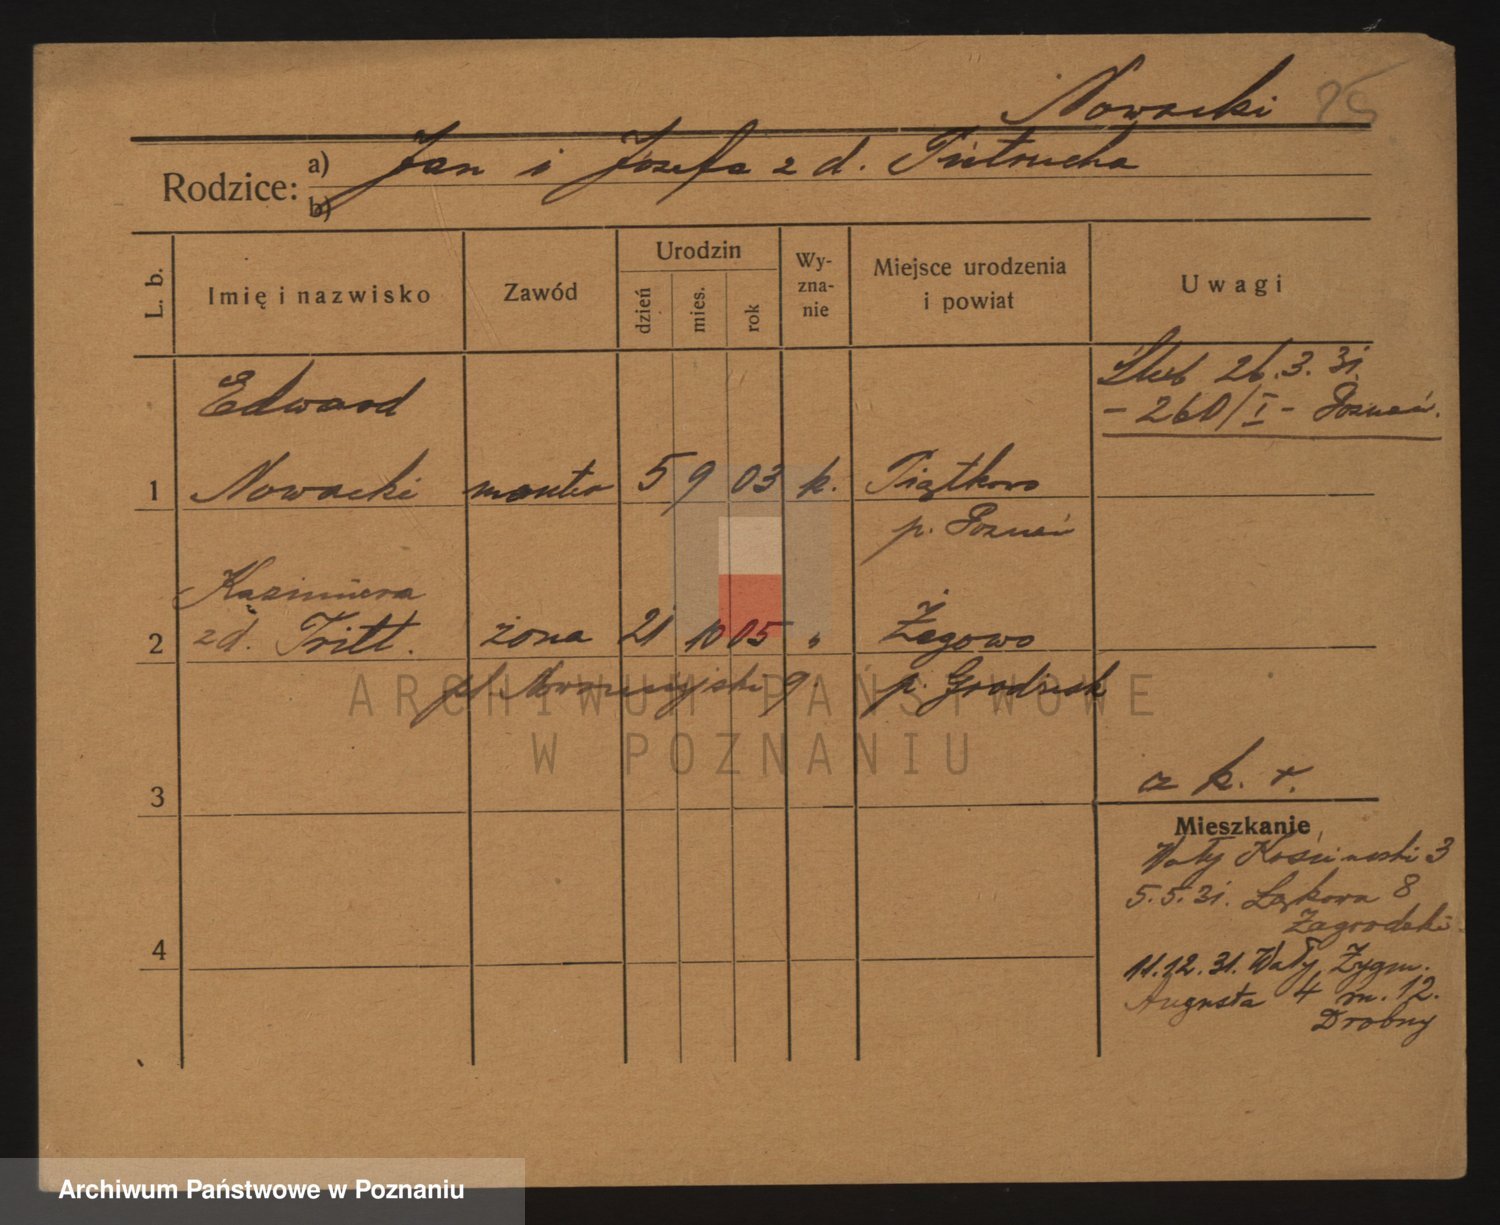 Nowacki 25
Rodzice: a) Jan i Józefa z d. Pietrucha
b)
L. b. Imię i nazwisko Zawód Urodzin dzień mies. rok Wy-zna-nie Miejsce urodzenia i powiat Uwagi
Ślub 26.3.31.
Edward – 260/I – Poznań.
1 Nowacki monter 5 9 03 k. Piątkowo
p. Poznań
Kazimiera
2 z d. Tritt. żona 21 10 05 " Żegowo
9. p. Grodzisk
ARCHIWUM PAŃSTWOWE
W POZNANIU
a k. r.
3
Mieszkanie
Wały Kościuszki 3
5.5.31. Łąkowa 8
Zagrodzki
4
11.12.31. Wały Zygm.
Augusta 4 m. 12.
Drobny
Archiwum Państwowe w Poznaniu